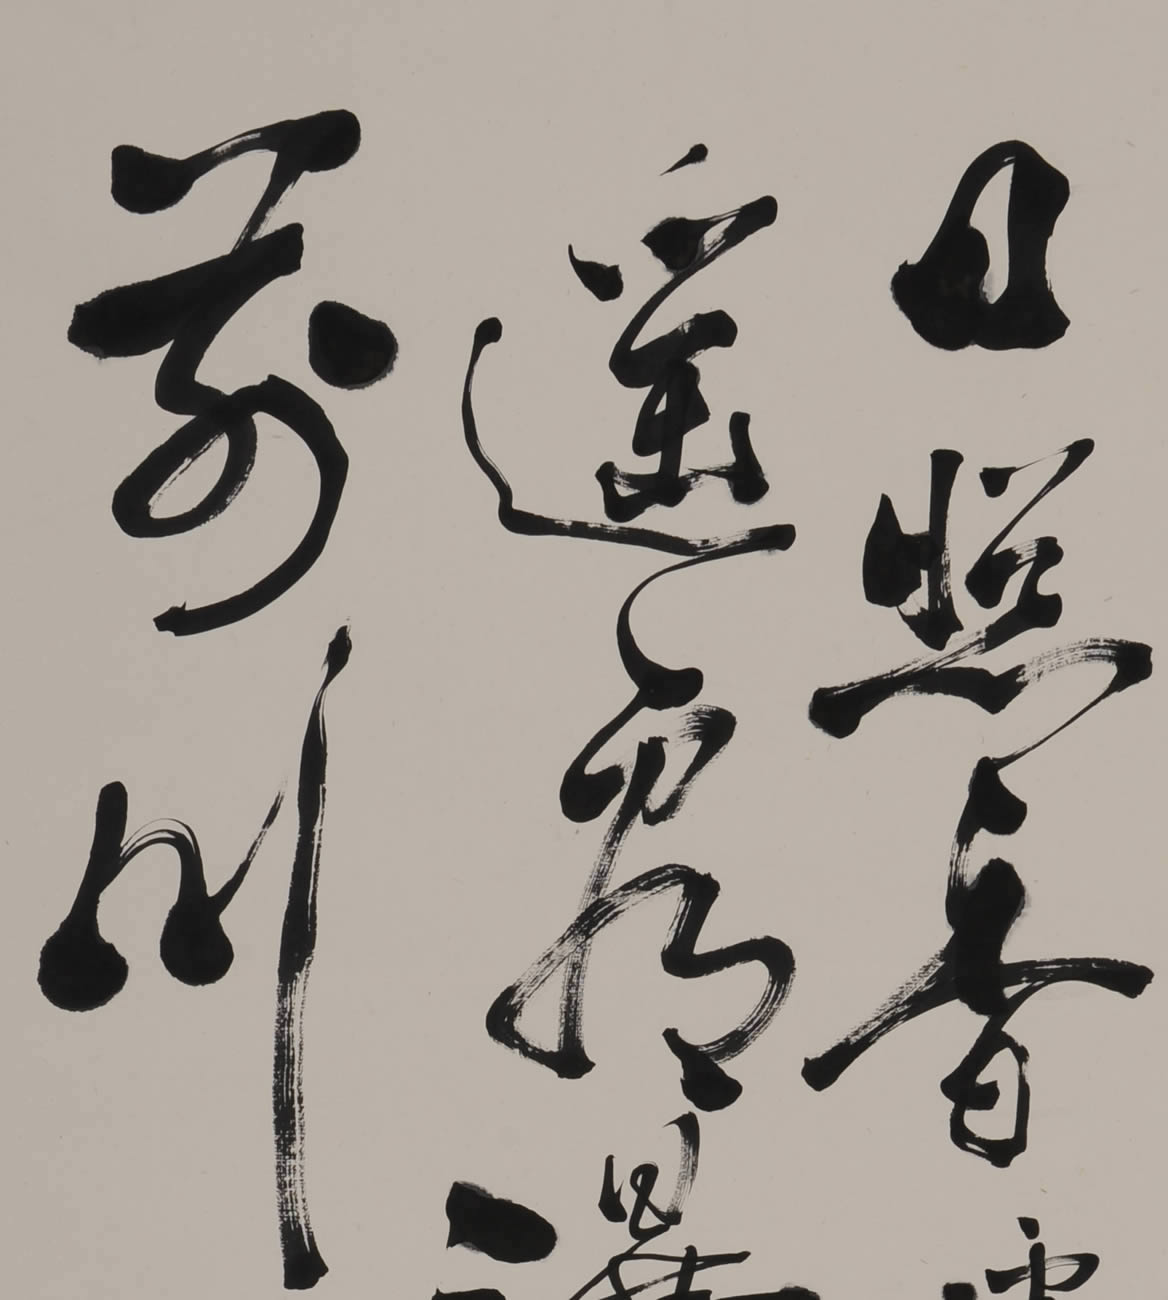 日照香
遥看瀑
前川